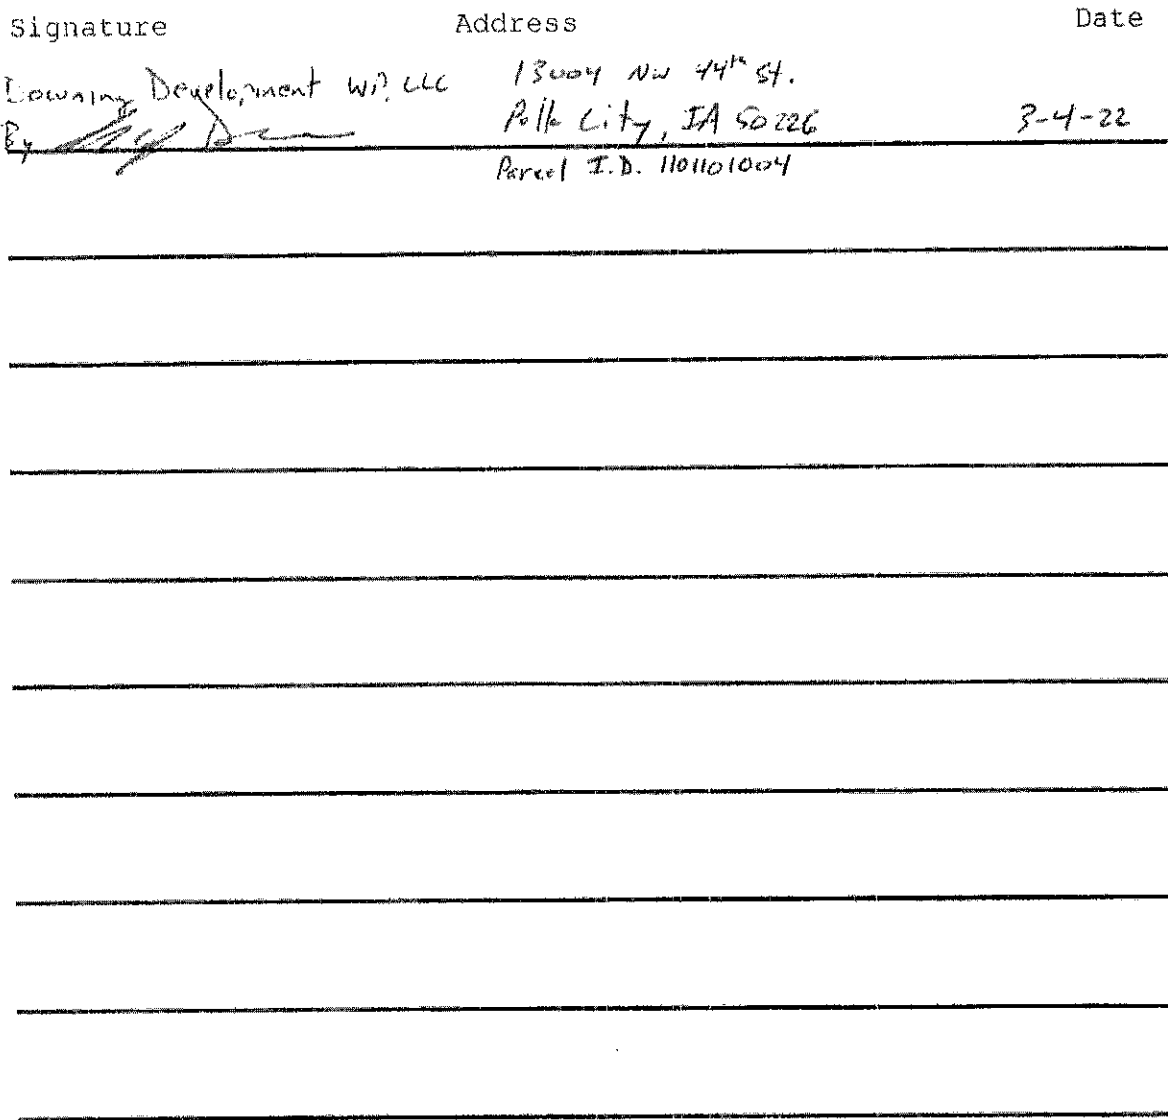 Signature Address Date
Downing Development WP, LLC 13004 NW 44th St.
By Polk City, IA 50226 3-4-22
Parcel I.D. 1101101004